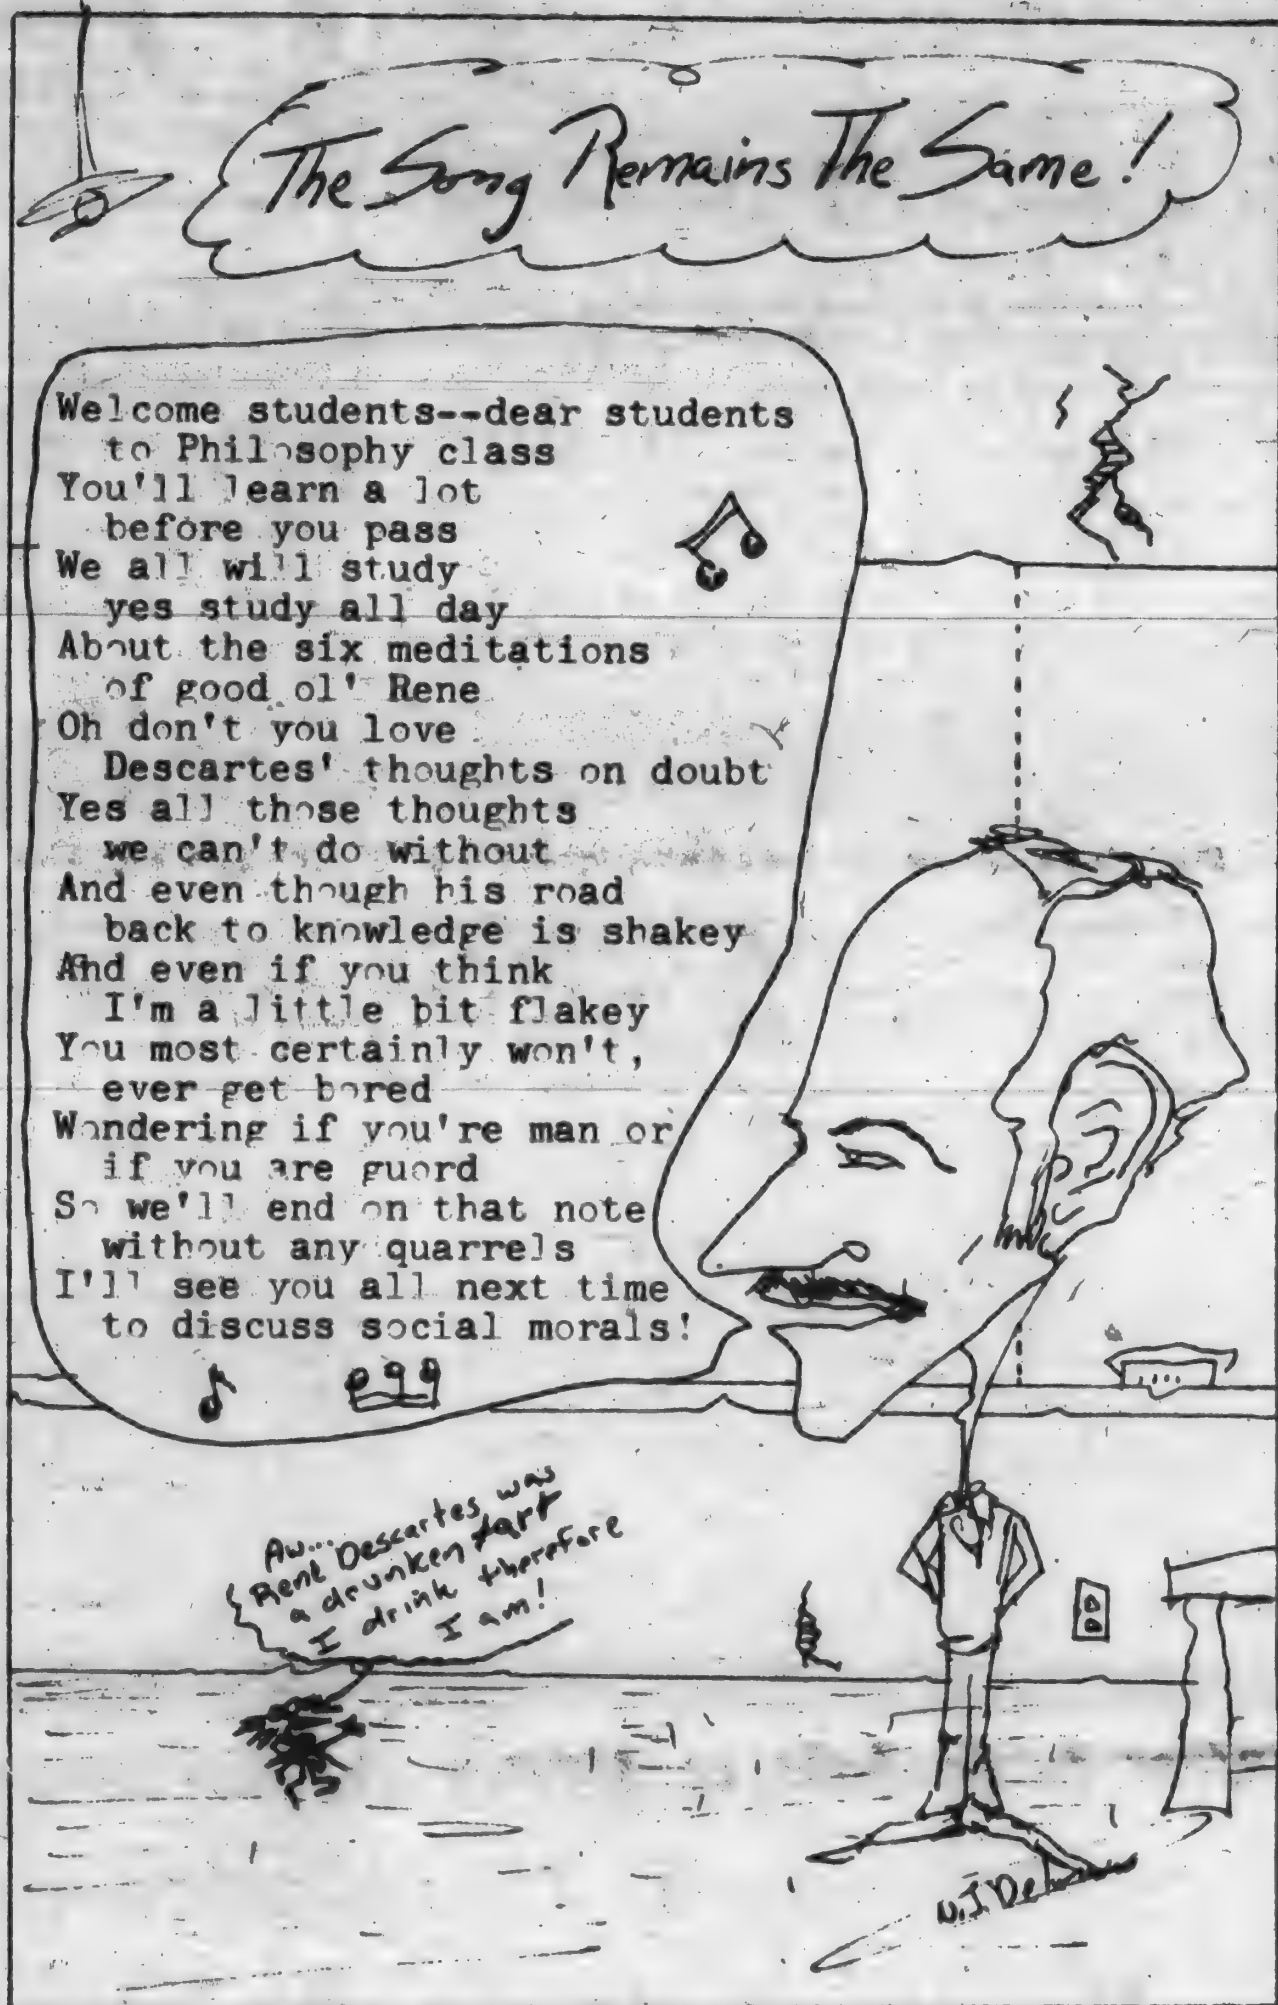 The Song Remains The Same!
Welcome students--dear students
to Philosophy class
You'll learn a lot
before you pass
We all will study
yes study all day
About the six meditations
of good ol' Rene
Oh don't you love
Descartes' thoughts on doubt
Yes all those thoughts
we can't do without
And even though his road
back to knowledge is shakey
And even if you think
I'm a little bit flakey
You most certainly won't,
ever get bored
Wondering if you're man or
if you are guord
So we'll end on that note
without any quarrels
I'll see you all next time
to discuss social morals!
Aw...
René Descartes was
a drunken fart
I drink therefore
I am!